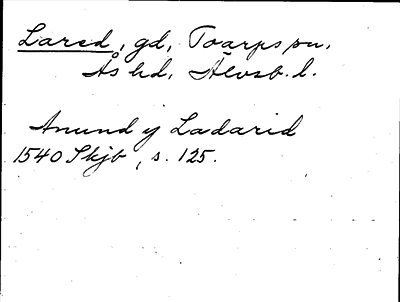 Lared, gd, Toarps sn.
Ås hd, Älvsb. l.
Anund y Ladarid
1540 Skjb, s. 125.